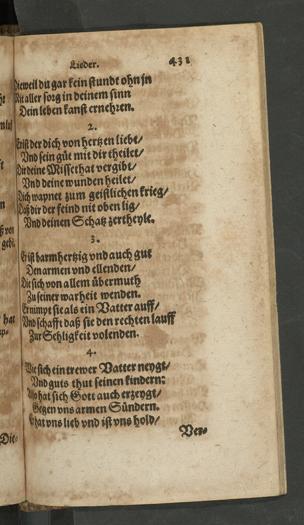 Lieder. 431
Dieweil du gar kein stundt ohn jn
Mit aller sorg in deinem sinn
Dein leben kanst ernehren.
2.
Er ist der dich von hertzen liebt/
Vnd sein güt mit dir theilet/
Dir deine Missethat vergibt/
Vnd deine wunden heilet/
Dich wapnet zum geistlichen krieg/
Daß dir der feind nit oben lig/
Vnd deinen Schatz zertheyle.
3.
Er ist barmhertzig vnd auch gut
Den armen vnd ellenden/
Die sich von allem übermuth
Zu seiner warheit wenden.
Er nimpt sie als ein Vatter auff/
Vnd schafft daß sie den rechten lauff
Zur Schligkeit volenden.
4.
Wie sich ein trewer Vatter neygt/
Vnd guts thut seinen kindern:
Also hat sich Gott auch erzeygt/
Gegen vns armen Sündern.
Er hat vns lieb vnd ist vns hold/
Ver-